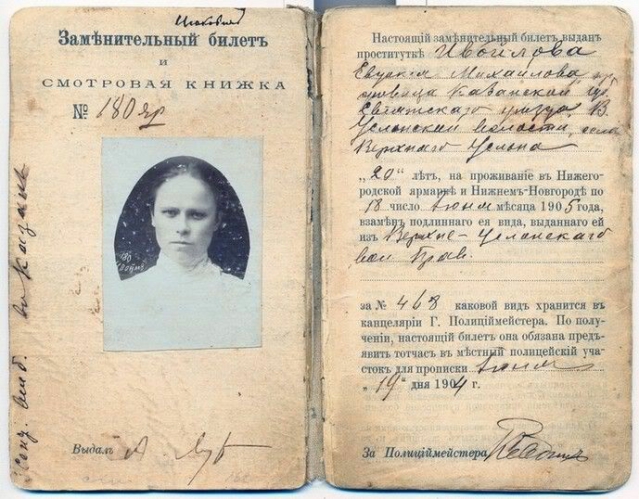 Замѣнительный билетъ
и
СМОТРОВАЯ КНИЖКА
№ 180 яр
Выдалъ
Настоящій замѣнительный билетъ выданъ
проституткѣ Ивойлова
Евдокія Михайлова кр
Казанской губ
Свіяжскаго уѣзда, В.
Услонской волости, села
Верхняго Услона
„20" лѣтъ, на проживаніе въ Нижего-
родской ярмаркѣ и Нижнемъ-Новгородѣ по
18 число іюня мѣсяца 1905 года,
взамѣнъ подлиннаго ея вида, выданнаго ей
изъ Верхне-Услонскаго
вол Прав.
за № 468 каковой видъ хранится въ
канцеляріи Г. Полиціймейстера. По полу-
ченіи, настоящій билетъ она обязана предъ-
явить тотчасъ въ мѣстный полицейскій уча-
стокъ для прописки іюня
„19" дня 1904 г.
За Полиціймейстера